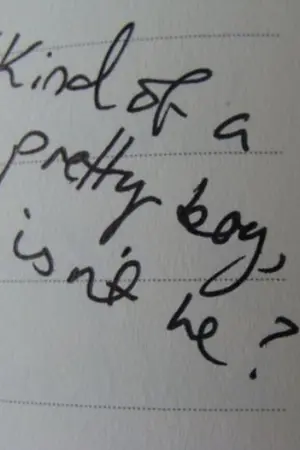 Kind of a
pretty boy,
isn't he?